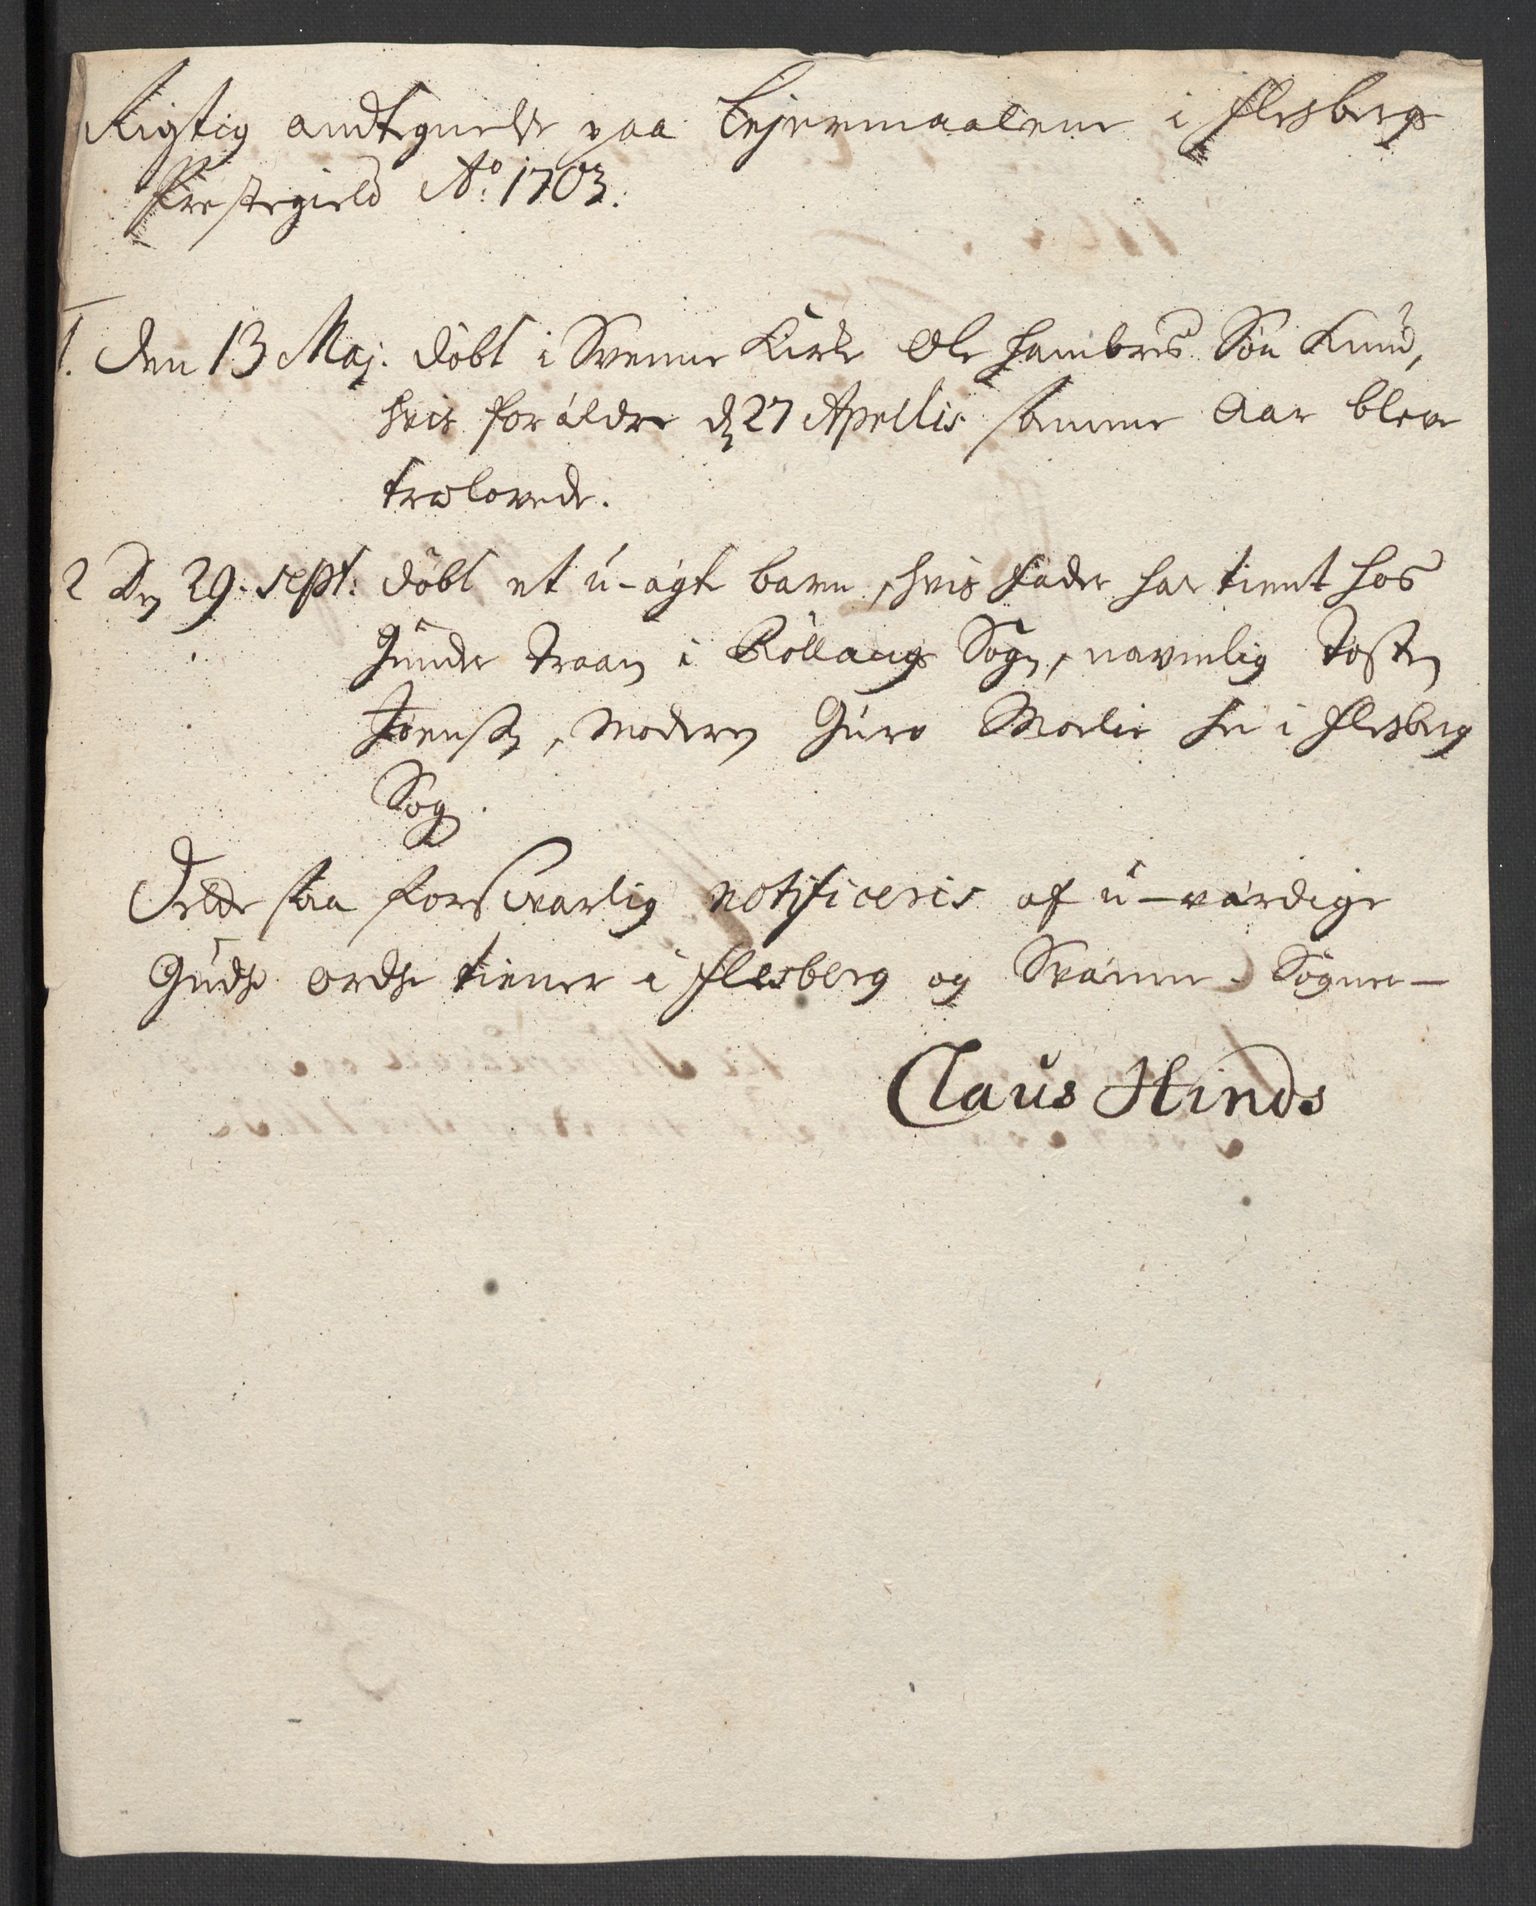 Rigtig andtegnelse paa Lejermaalene i Flesberg
Prestegield Ao: 1703.
1. Den 13 Maj. döbt i Svenne Kirke Ole Hambres Sön Knud,
hvis forældre d 27 Aprilis samme Aar bleve
trolovede.
2 Den 29. sept: döbt et u-ægte barn, hvis fader har tient hos
Gunder Traan i Rollaugs Sogn, navnlig Tosten
Joensen, Moderen Guro i Flesberg
Sogn.
Dette saa forsvarlig notificeris af u-værdige
Guds ords tiener i Flesberg og Svenne Sogner-
Claus Hinds